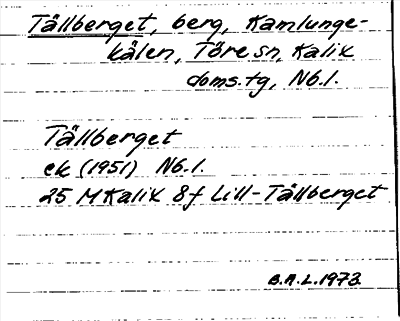 Tållberget, berg, Kamlunge-
kölen, Töre sn, Kalix
doms.tg, Nb.l.
Tållberget
ek (1951) Nb.l.
25 M Kalix 8f Lill-Tållberget
B.A.L.1973